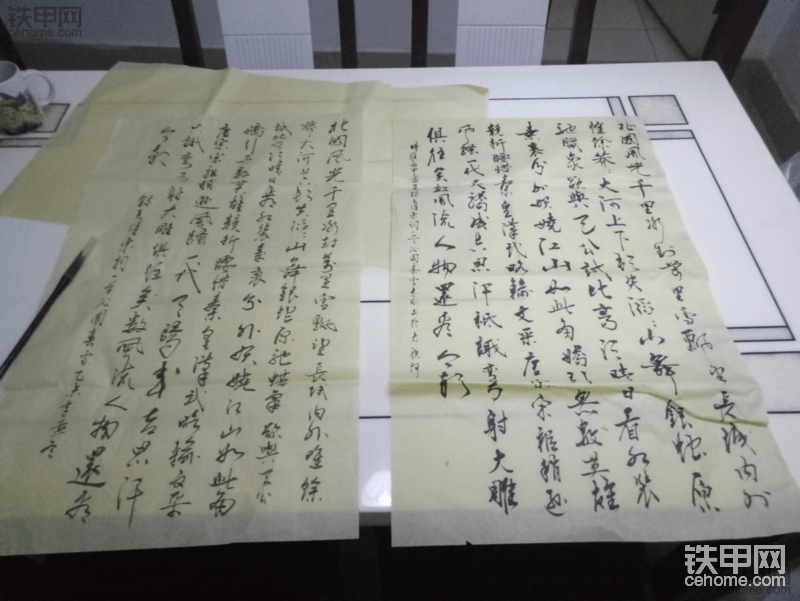 铁甲网
cehome.com
北國風光千里冰封萬里雪飄望長城内外
惟餘莽大河上下頓失滔滔山舞銀蛇原
馳臘象欲與天公試比高須晴日看红装
素裹分外妖娆江山如此多嬌引無數英雄
競折腰惜秦皇漢武略輸文采唐宗宋祖稍遜
風騷一代天驕成吉思汗祇識彎弓射大雕
俱往矣數風流人物還看今朝
毛澤東詞一首沁園春雪
北國風光千里冰封萬里雪飄望長城内外惟餘
莽大河上下頓失滔滔山舞銀蛇原馳蜡象欲與天公
試比高須晴日看红装素裹分外妖娆江山如此多
嬌引無數英雄競折腰惜秦皇漢武略輸文采
唐宗宋祖稍遜風騷一代天驕成吉思汗
只識彎弓射大雕俱往矣數風流人物還看
今朝
録毛澤東詞一首沁園春雪乙未
铁甲网
cehome.com